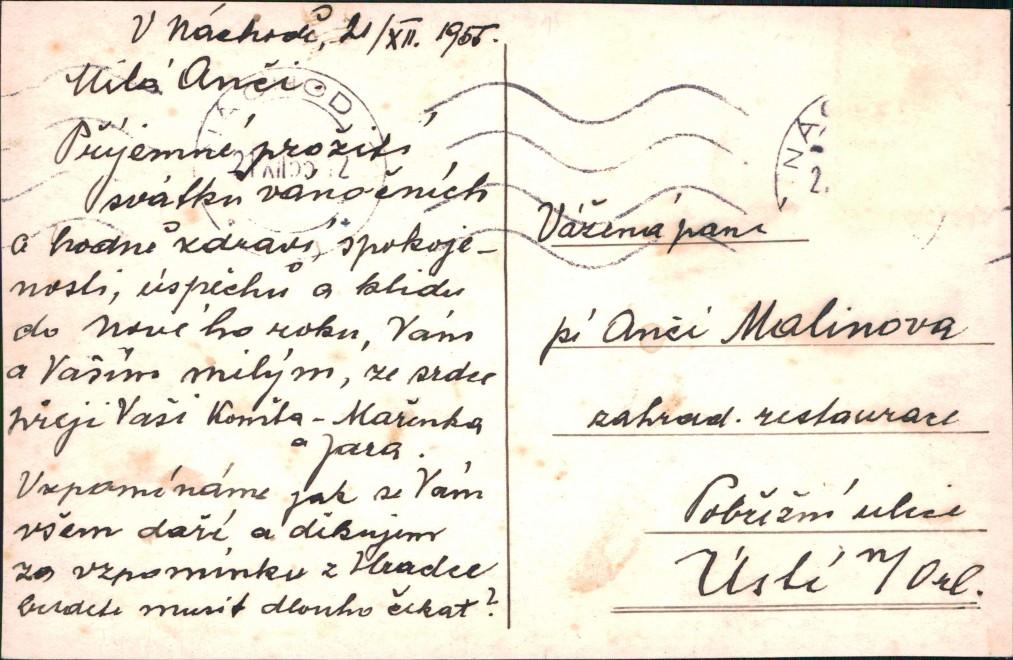 V Náchodě, 21/XII. 1955.
Milá Anči.
Příjemné prožití
svátků vánočních
a hodně zdraví, spokoje-
nosti, úspěchů a klidu
do nového roku, Vám
a Vašim milým, ze srdce
přejí Vaši - Mařenka
a Jara.
Vzpomínáme jak se Vám
všem daří a děkujem
za vzpomínku z Hradce
budete musit dlouho čekat?
NÁCHOD
NÁ
2.
Vážená paní
pí Anči Malinova
zahrad. restaurace
Pobřežní ulice
Ústí n/Orl.